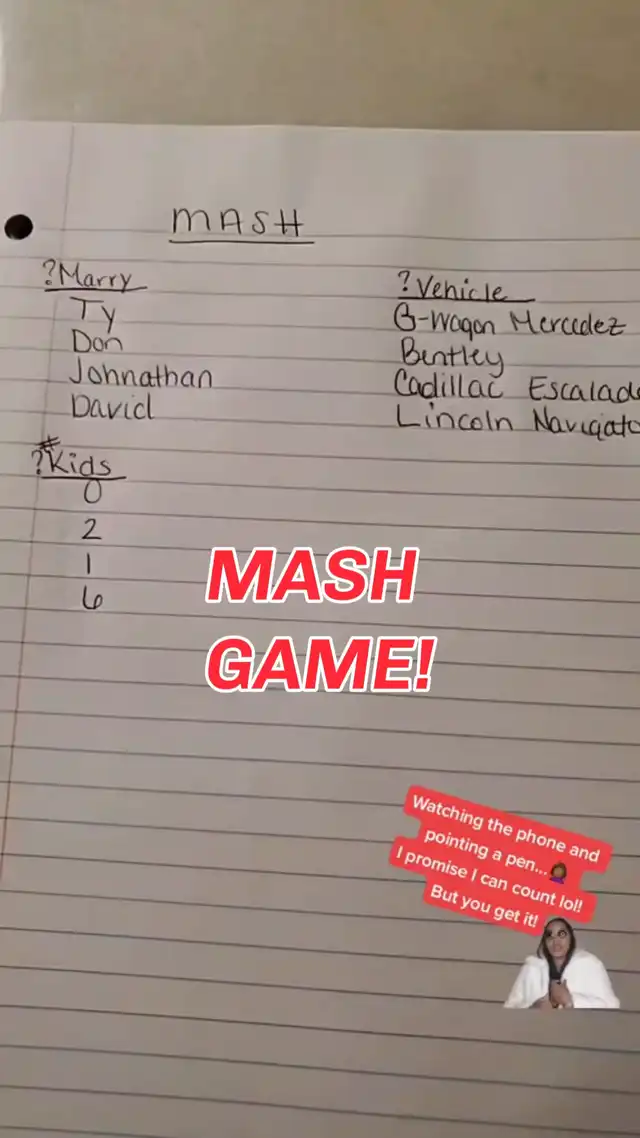 MASH
?Marry
Ty
Don
Johnathan
David
?Vehicle
G-Wagon Mercedez
Bentley
Cadillac Escalade
Lincoln Navigato
#
?Kids
0
2
1
6
MASH
GAME!
Watching the phone and
pointing a pen...🤦🏾‍♀️
I promise I can count lol!
But you get it!